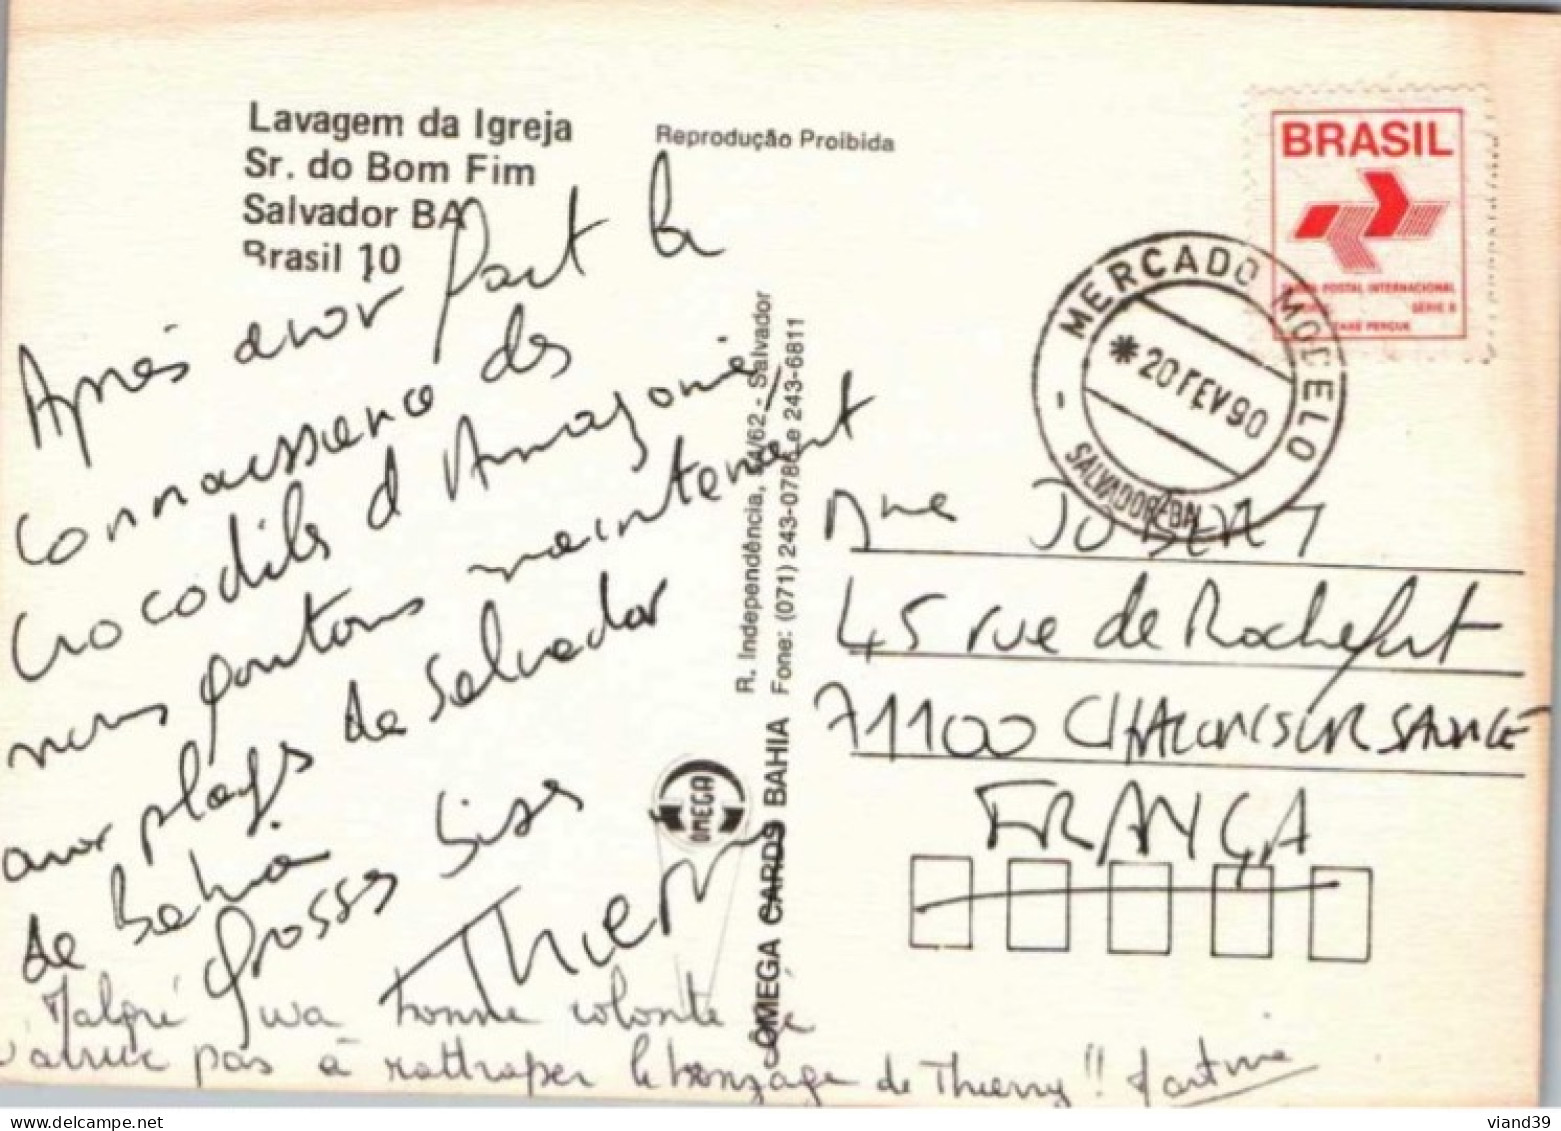 Lavagem da Igreja
Sr. do Bom Fim
Salvador BA
Brasil 10
Reprodução Proibida
BRASIL
POSTAL INTERNACIONAL
SÉRIE B
TAXE PERÇUE
MERCADO MODELO
*20 FEV 90
SALVADOR-BA
Après avoir fait la
connaissance des
crocodiles d'Amazonie,
nous goutons maintenant
aux plages de Salvador
de Bahia
Grosses bises
Thierry
Malgré ma bonne volonté je
n'arrive pas à rattraper le bronzage de Thierry!! Martine
R. Independência, 54/62 - Salvador
Fone: (071) 243-0786 e 243-6811
OMEGA CARDS BAHIA
OMEGA
Mme JOBERT
45 rue de Rochefort
71100 CHALON SUR SAONE
FRANÇA
viand39